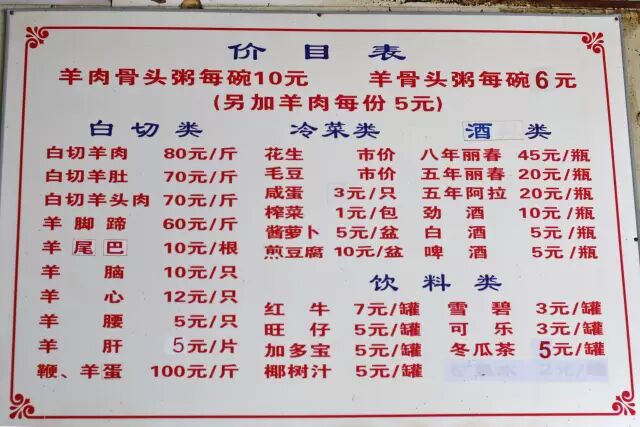 价目表
羊肉骨头粥每碗10元 羊骨头粥每碗6元
(另加羊肉每份5元)
白切类
白切羊肉 80元/斤
白切羊肚 70元/斤
白切羊头肉 70元/斤
羊脚蹄 60元/斤
羊尾巴 10元/根
羊脑 10元/只
羊心 12元/只
羊腰 5元/只
羊肝 5元/片
鞭、羊蛋 100元/斤
冷菜类
花生 市价
毛豆 市价
咸蛋 3元/只
榨菜 1元/包
酱萝卜 5元/盆
煎豆腐 10元/盆
酒类
八年丽春 45元/瓶
五年丽春 20元/瓶
五年阿拉 20元/瓶
劲酒 10元/瓶
白酒 5元/瓶
啤酒 5元/瓶
饮料类
红牛 7元/罐
旺仔 5元/罐
加多宝 5元/罐
椰树汁 5元/罐
雪碧 3元/罐
可乐 3元/罐
冬瓜茶 5元/罐